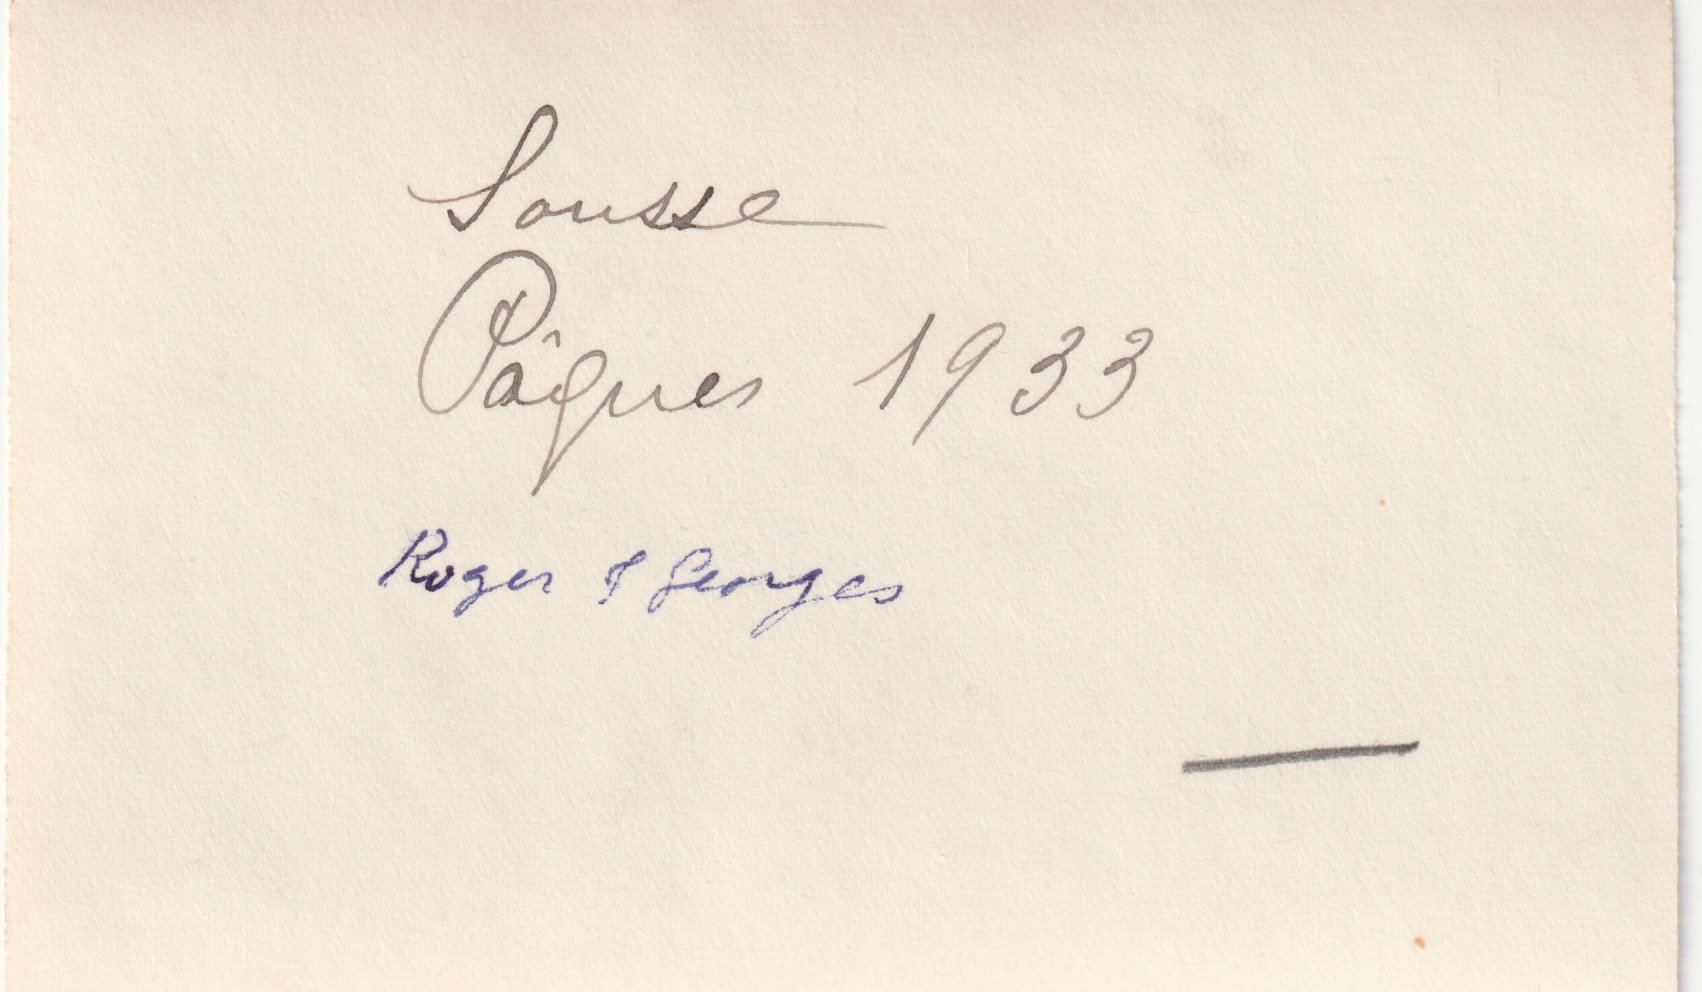 Sousse
Pâques 1933
Roger & Georges